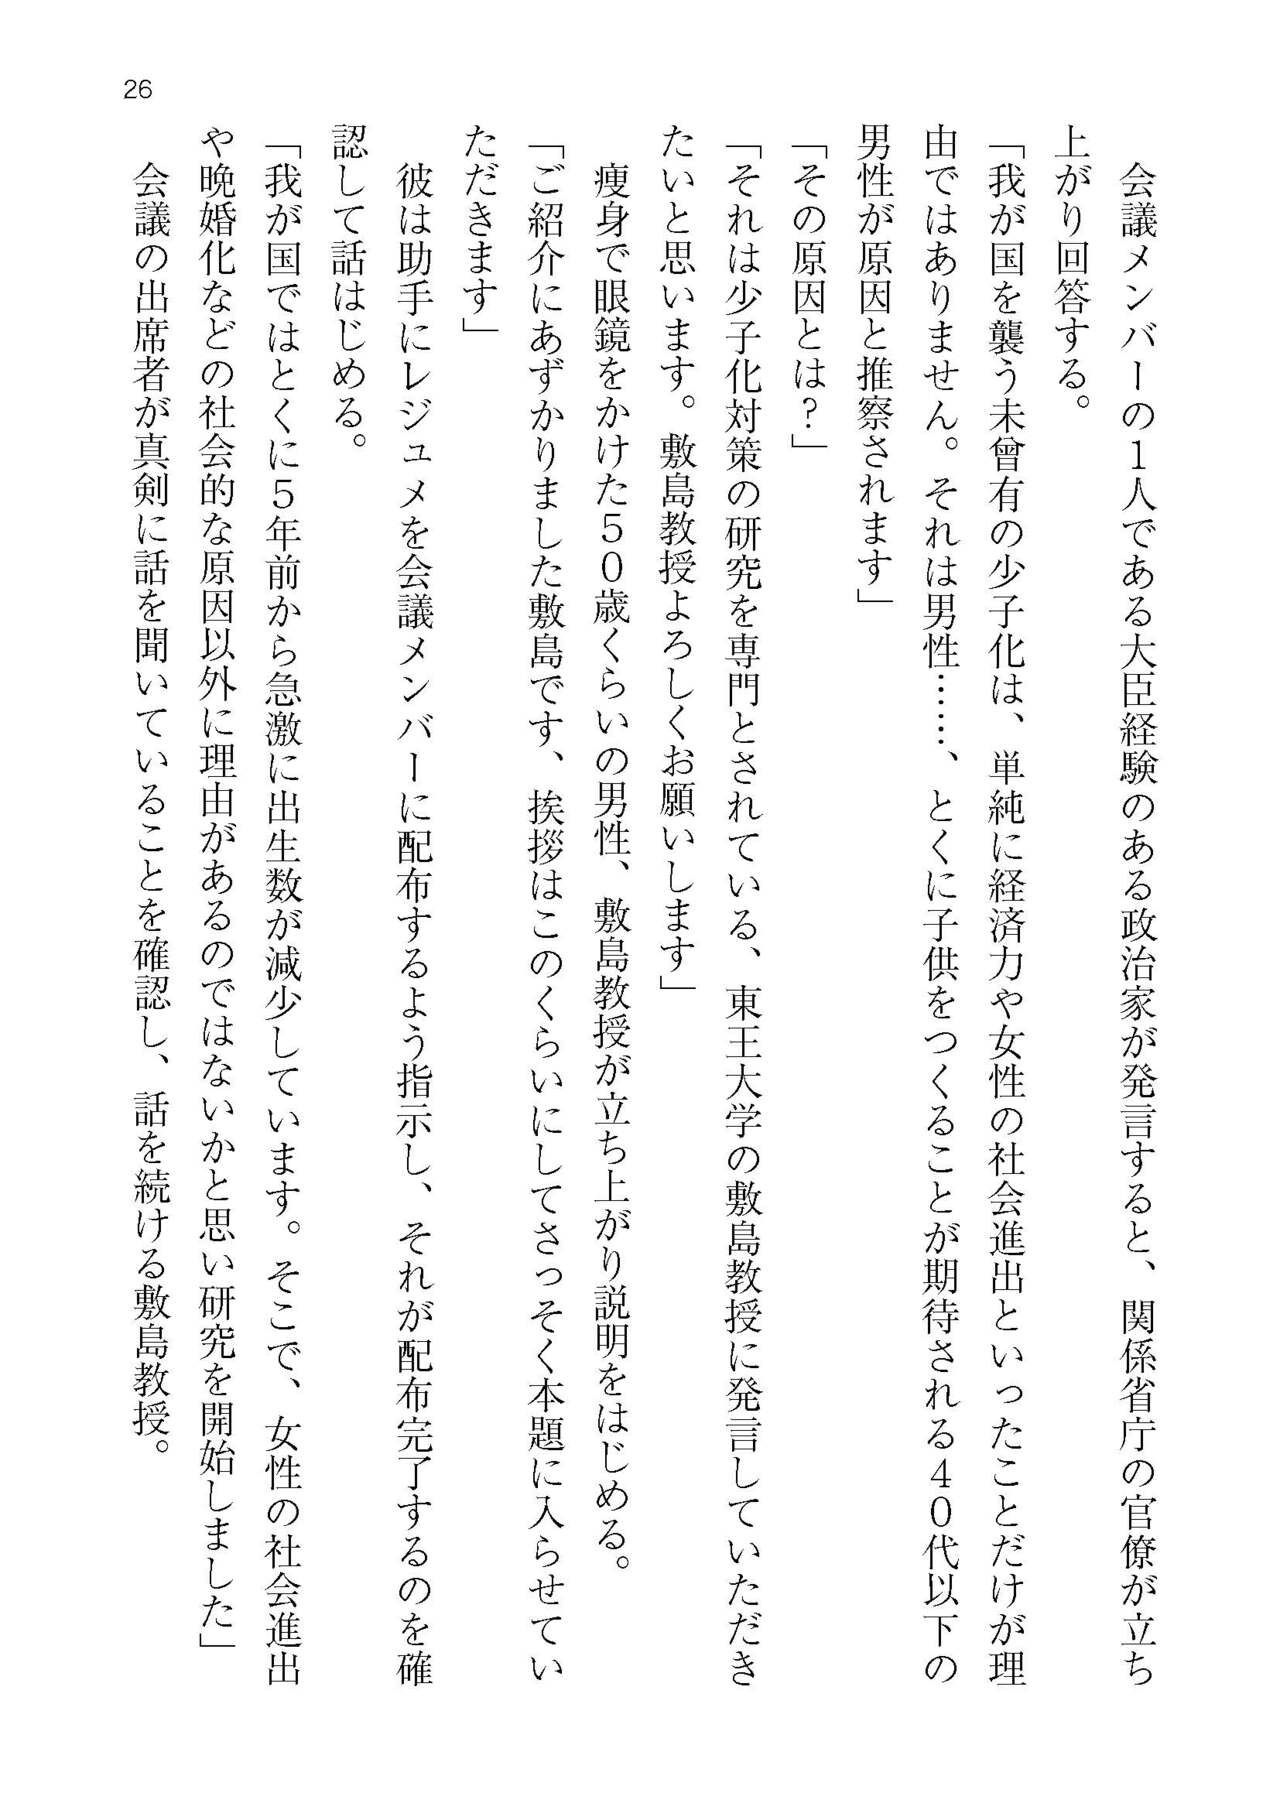 26
　会議メンバーの１人である大臣経験のある政治家が発言すると、関係省庁の官僚が立ち
上がり回答する。
「我が国を襲う未曾有の少子化は、単純に経済力や女性の社会進出といったことだけが理
由ではありません。それは男性……、とくに子供をつくることが期待される４０代以下の
男性が原因と推察されます」
「その原因とは？」
「それは少子化対策の研究を専門とされている、東王大学の敷島教授に発言していただき
たいと思います。敷島教授よろしくお願いします」
　痩身で眼鏡をかけた５０歳くらいの男性、敷島教授が立ち上がり説明をはじめる。
「ご紹介にあずかりました敷島です、挨拶はこのくらいにしてさっそく本題に入らせてい
ただきます」
　彼は助手にレジュメを会議メンバーに配布するよう指示し、それが配布完了するのを確
認して話はじめる。
「我が国ではとくに５年前から急激に出生数が減少しています。そこで、女性の社会進出
や晩婚化などの社会的な原因以外に理由があるのではないかと思い研究を開始しました」
　会議の出席者が真剣に話を聞いていることを確認し、話を続ける敷島教授。